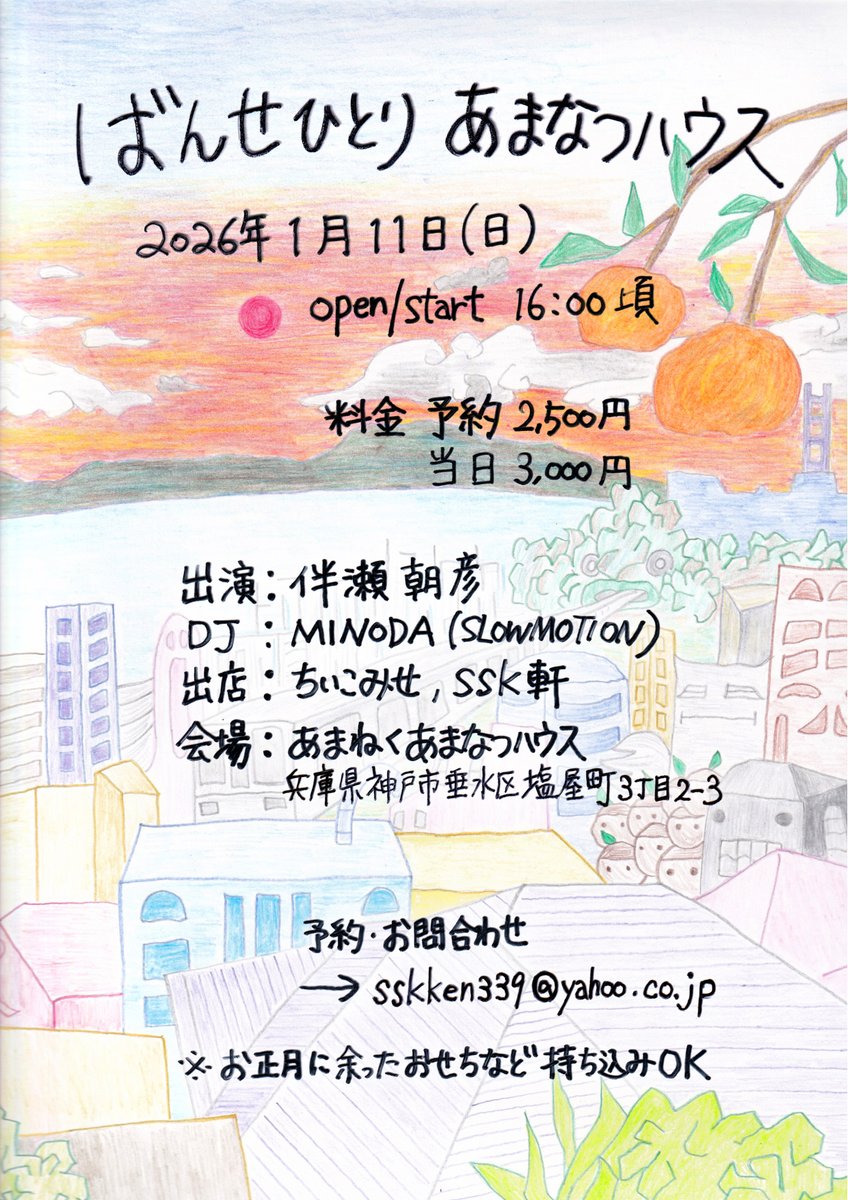 ばんせひとり あまなつハウス
2026年1月11日(日)
open/start 16:00頃
料金 予約 2,500円
当日 3,000円
出演：伴瀬 朝彦
DJ：MINODA (SLOWMOTION)
出店：ちいこみせ, SSK軒
会場：あまねくあまなつハウス
兵庫県神戸市垂水区塩屋町3丁目2-3
予約・お問合わせ
→ sskken339@yahoo.co.jp
※お正月に余ったおせちなど持ち込みOK